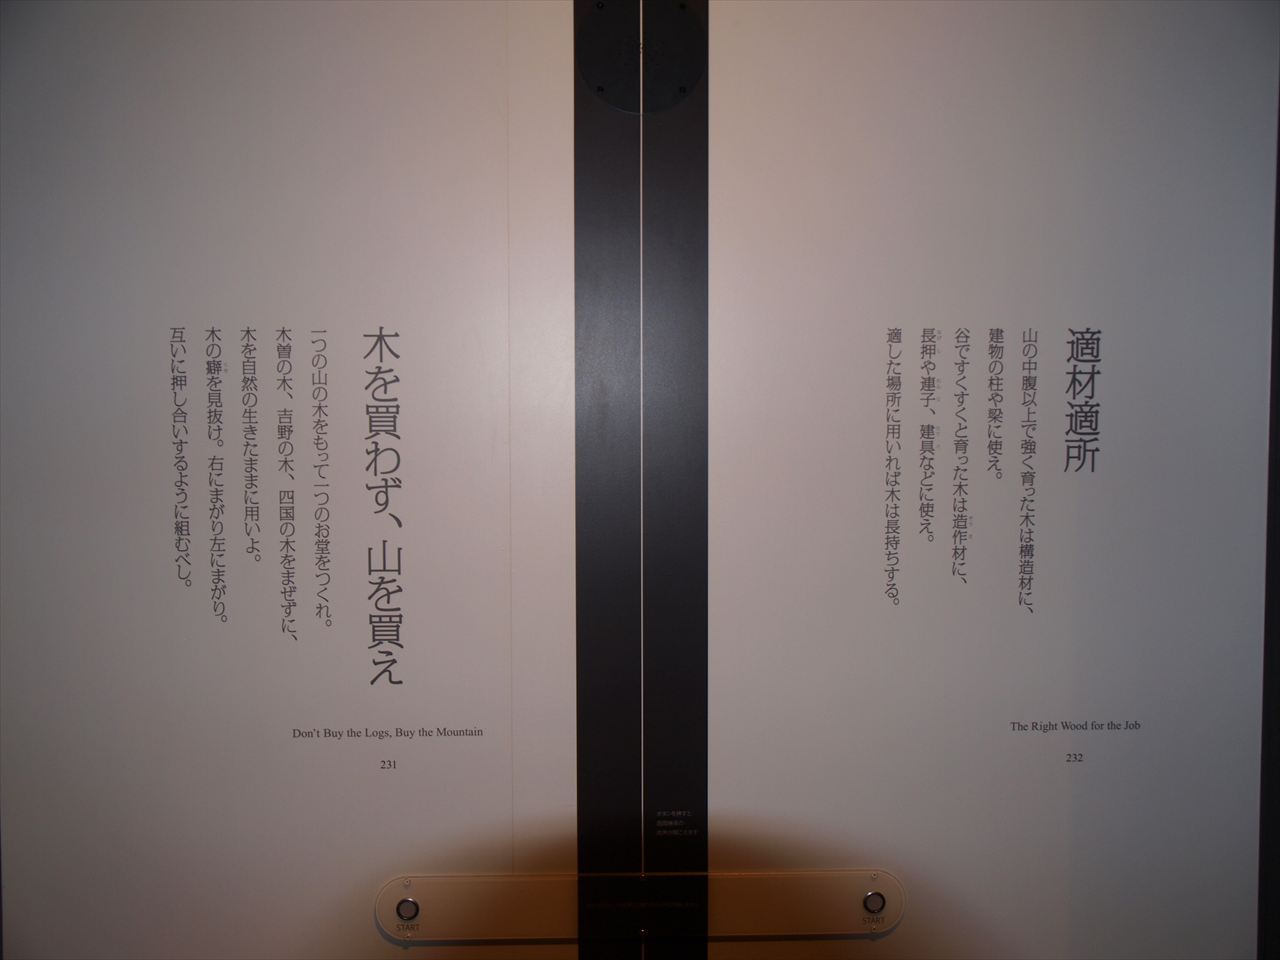 適材適所
山の中腹以上で強く育った木は構造材に、
建物の柱や梁に使え。
谷ですくすくと育った木は造作材に、
長押や連子、建具などに使え。
適した場所に用いれば木は長持ちする。
The Right Wood for the Job
232
木を買わず、山を買え
一つの山の木をもって一つのお堂をつくれ。
木曽の木、吉野の木、四国の木をまぜずに、
木を自然の生きたままに用いよ。
木の癖を見抜け。右にまがり左にまがり。
互いに押し合いするように組むべし。
Don't Buy the Logs, Buy the Mountain
231
ボタンを押すと
START
START